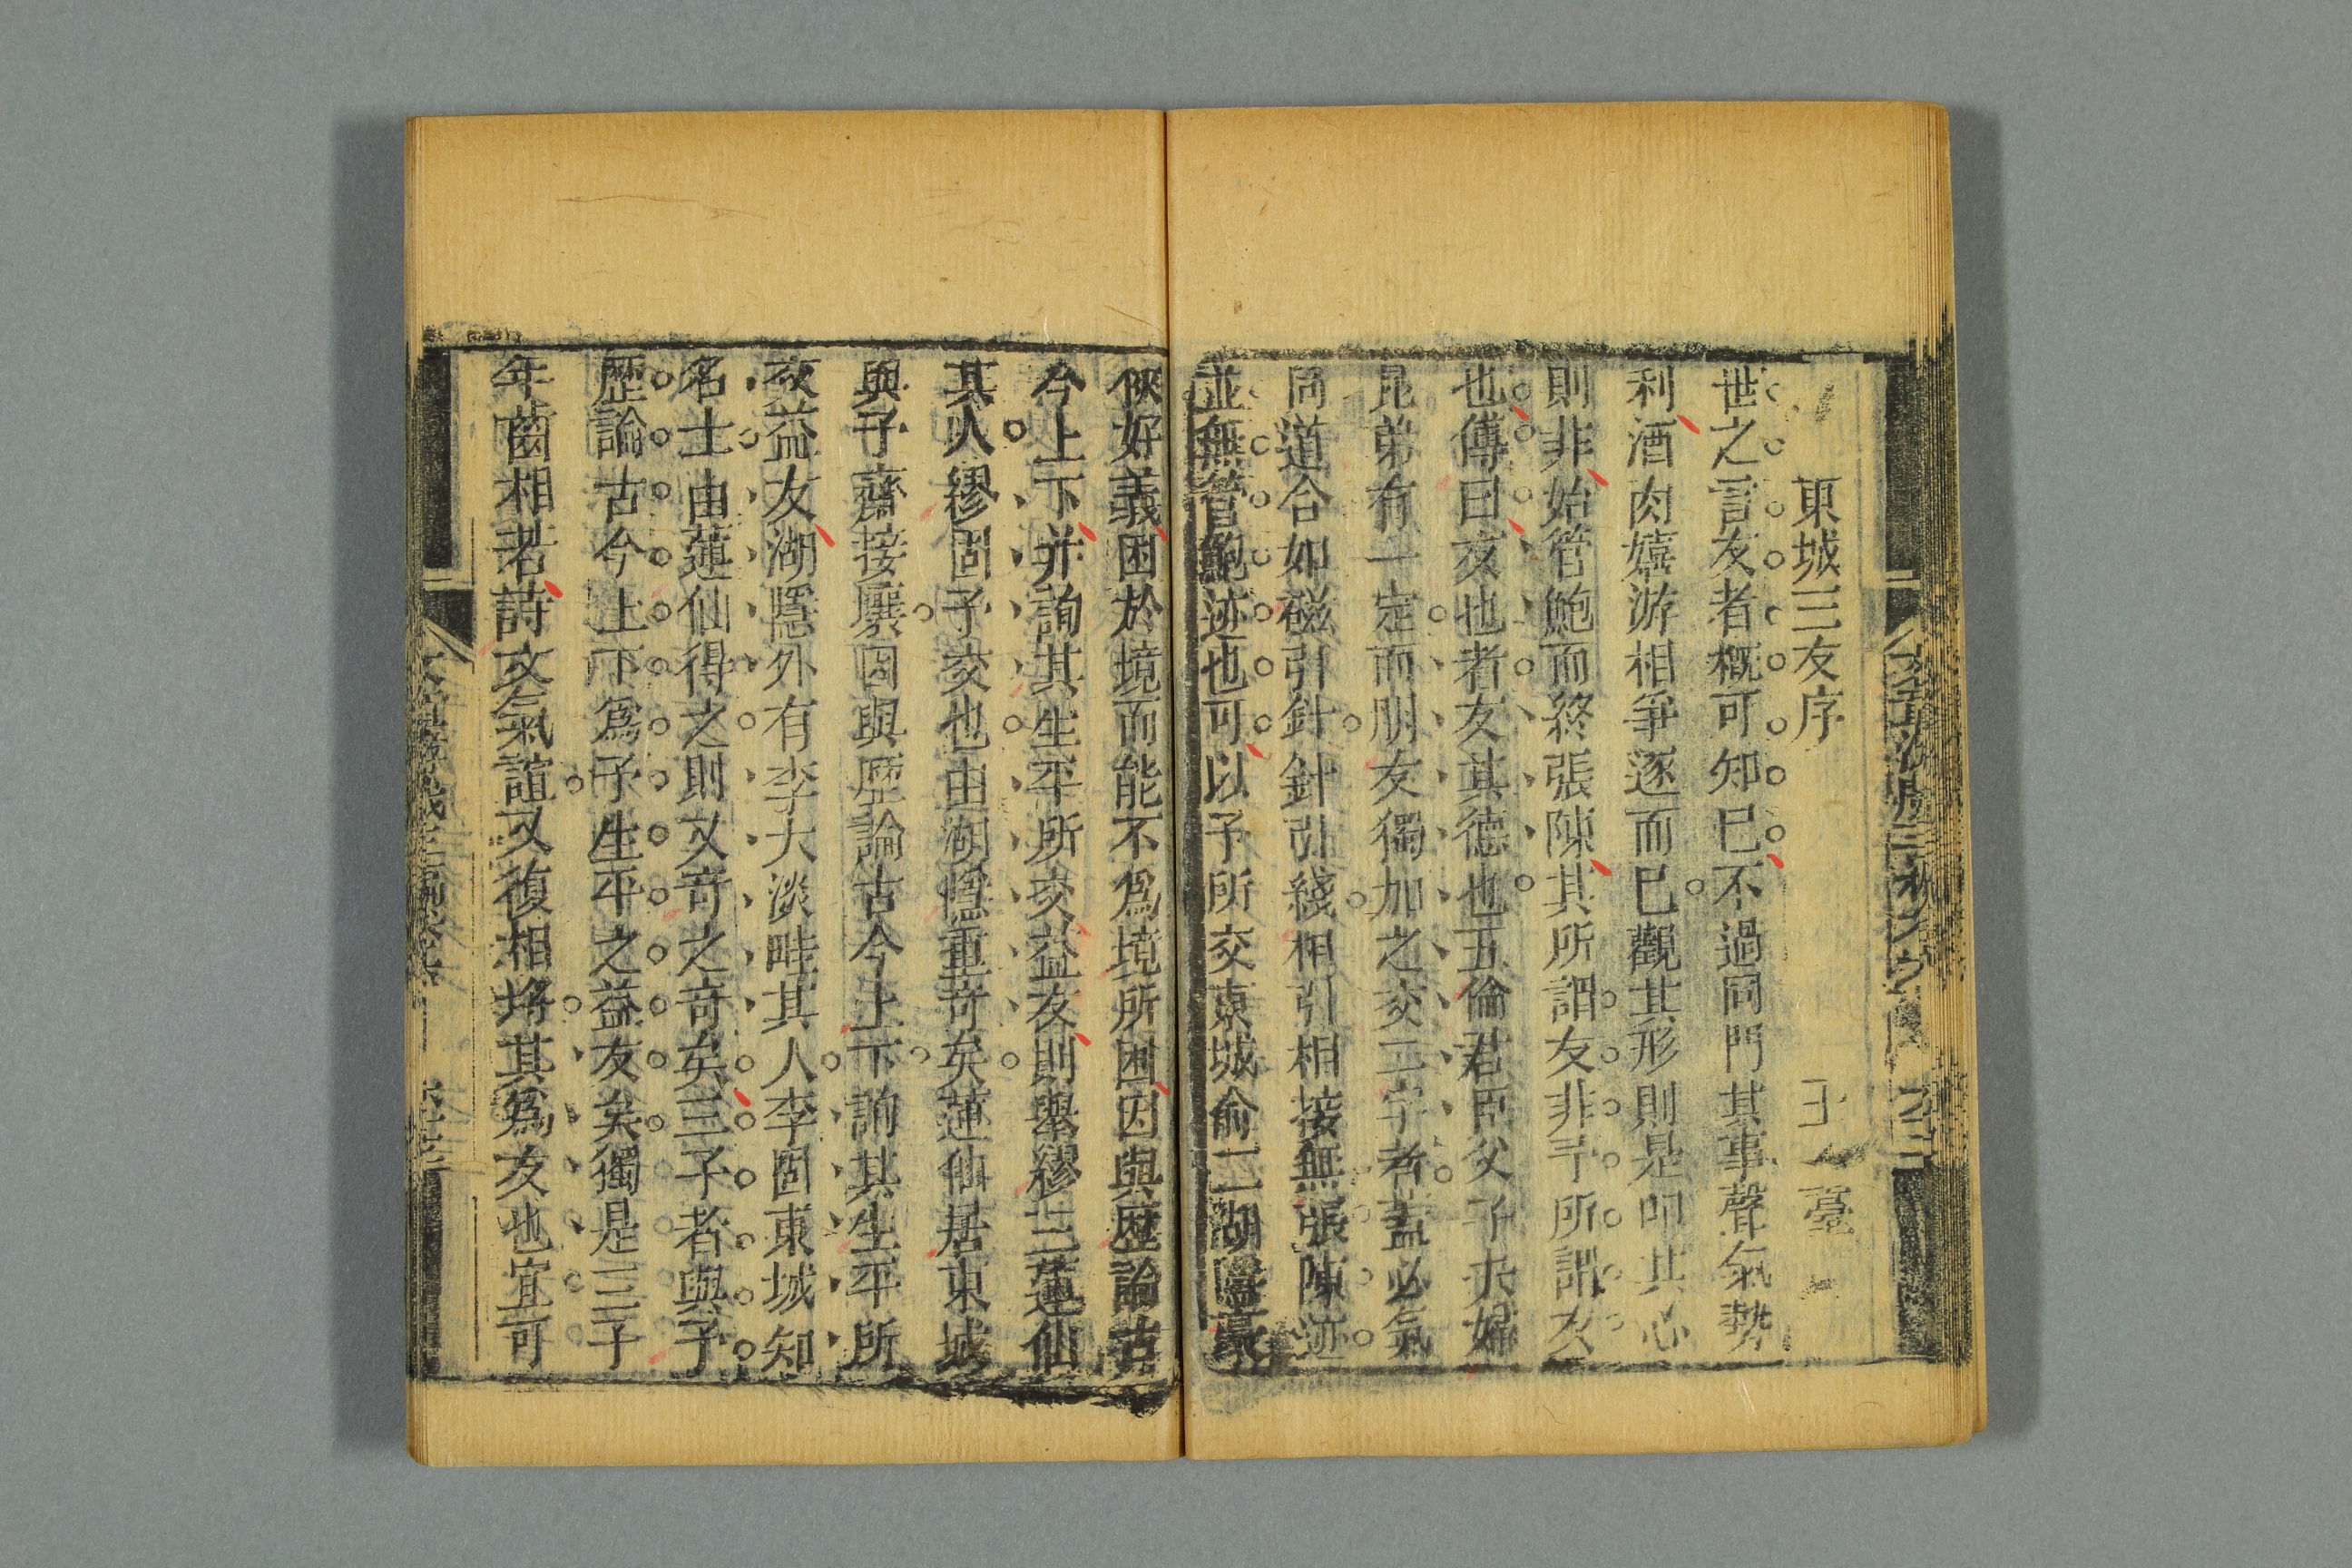 東城三友序
世之言友者概可知已不過同門其事聲氣勢
利酒肉嬉游相爭逐而已觀其形則是叩其心
則非始管鮑而終張陳其所謂友非予所謂友
也傳曰友也者友其德也五倫君臣父子夫婦
昆弟有一定而朋友獨加之交二字者蓋必氣
同道合如磁引針針引綫相引相接無張陳迹
並無管鮑迹也可以予所交東城俞二湖隱豪
俠好義困於境而能不爲境所困因與歷論古
今上下并詢其生平所交益友則舉繆三蓮仙
其人繆固予交也由湖隱重竒矣蓮仙居東城
與予齋接壤因與歷論古今上下詢其生平所
交益友湖隱外有李大淡畦其人李固東城知
名士由蓮仙得之則又竒之竒矣三子者與予
歷論古今上下爲予生平之益友矣獨是三子
年齒相若詩文氣誼又復相埒其爲友也宜可